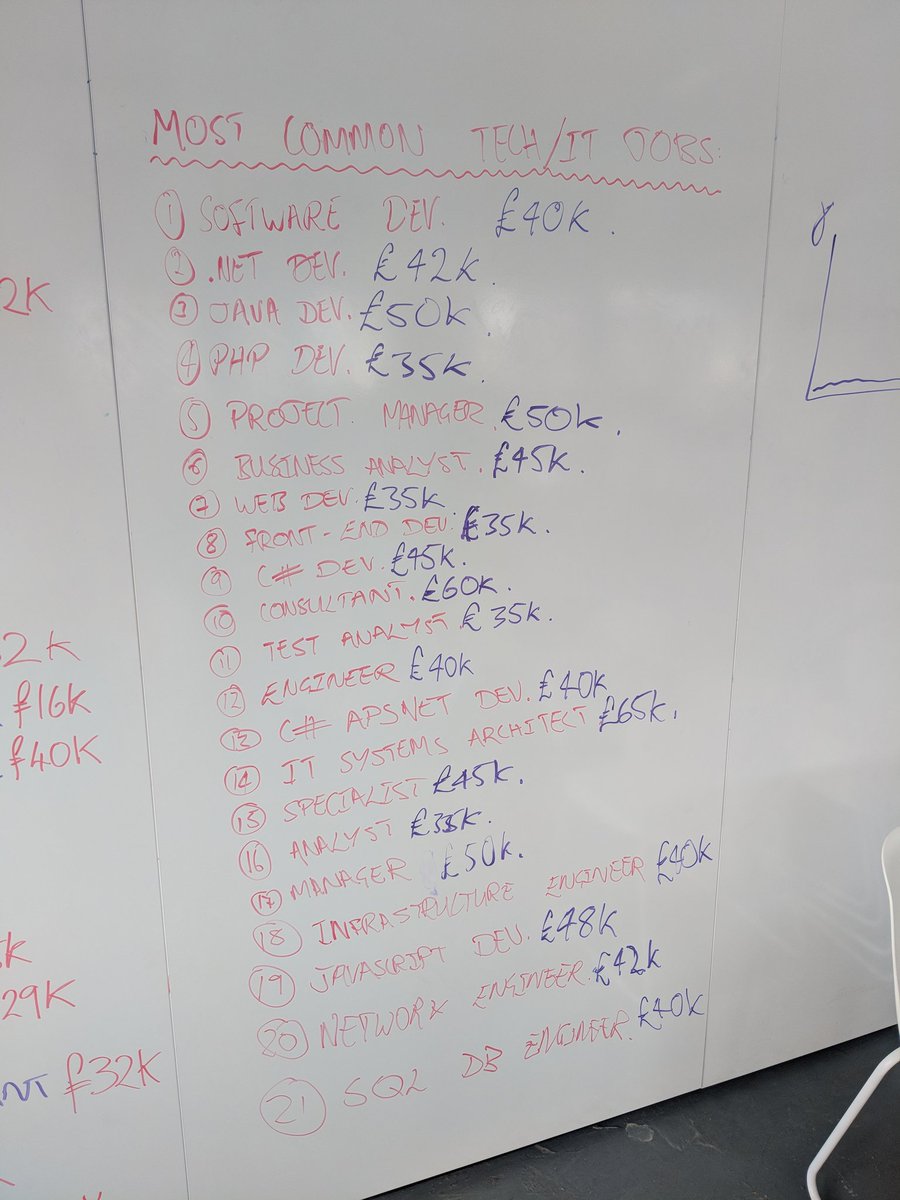 MOST COMMON TECH/IT JOBS:
① SOFTWARE DEV. £40K.
② .NET DEV. £42K.
③ JAVA DEV. £50K.
④ PHP DEV. £35K.
⑤ PROJECT. MANAGER. £50K.
⑥ BUSINESS ANALYST. £45K.
⑦ WEB DEV. £35K.
⑧ FRONT-END DEV. £35K.
⑨ C# DEV. £45K.
⑩ CONSULTANT. £60K.
⑪ TEST ANALYST £35K.
⑫ ENGINEER £40K
⑬ C# APSNET DEV. £40K
⑭ IT SYSTEMS ARCHITECT £65K.
⑮ SPECIALIST £45K.
⑯ ANALYST £35K.
⑰ MANAGER £50K.
⑱ INFRASTRUCTURE ENGINEER £40K
⑲ JAVASCRIPT DEV. £48K
⑳ NETWORK ENGINEER. £42K
㉑ SQL DB ENGINEER. £40K
2K
2K
£16K
£40K
K
29K
NT £32K